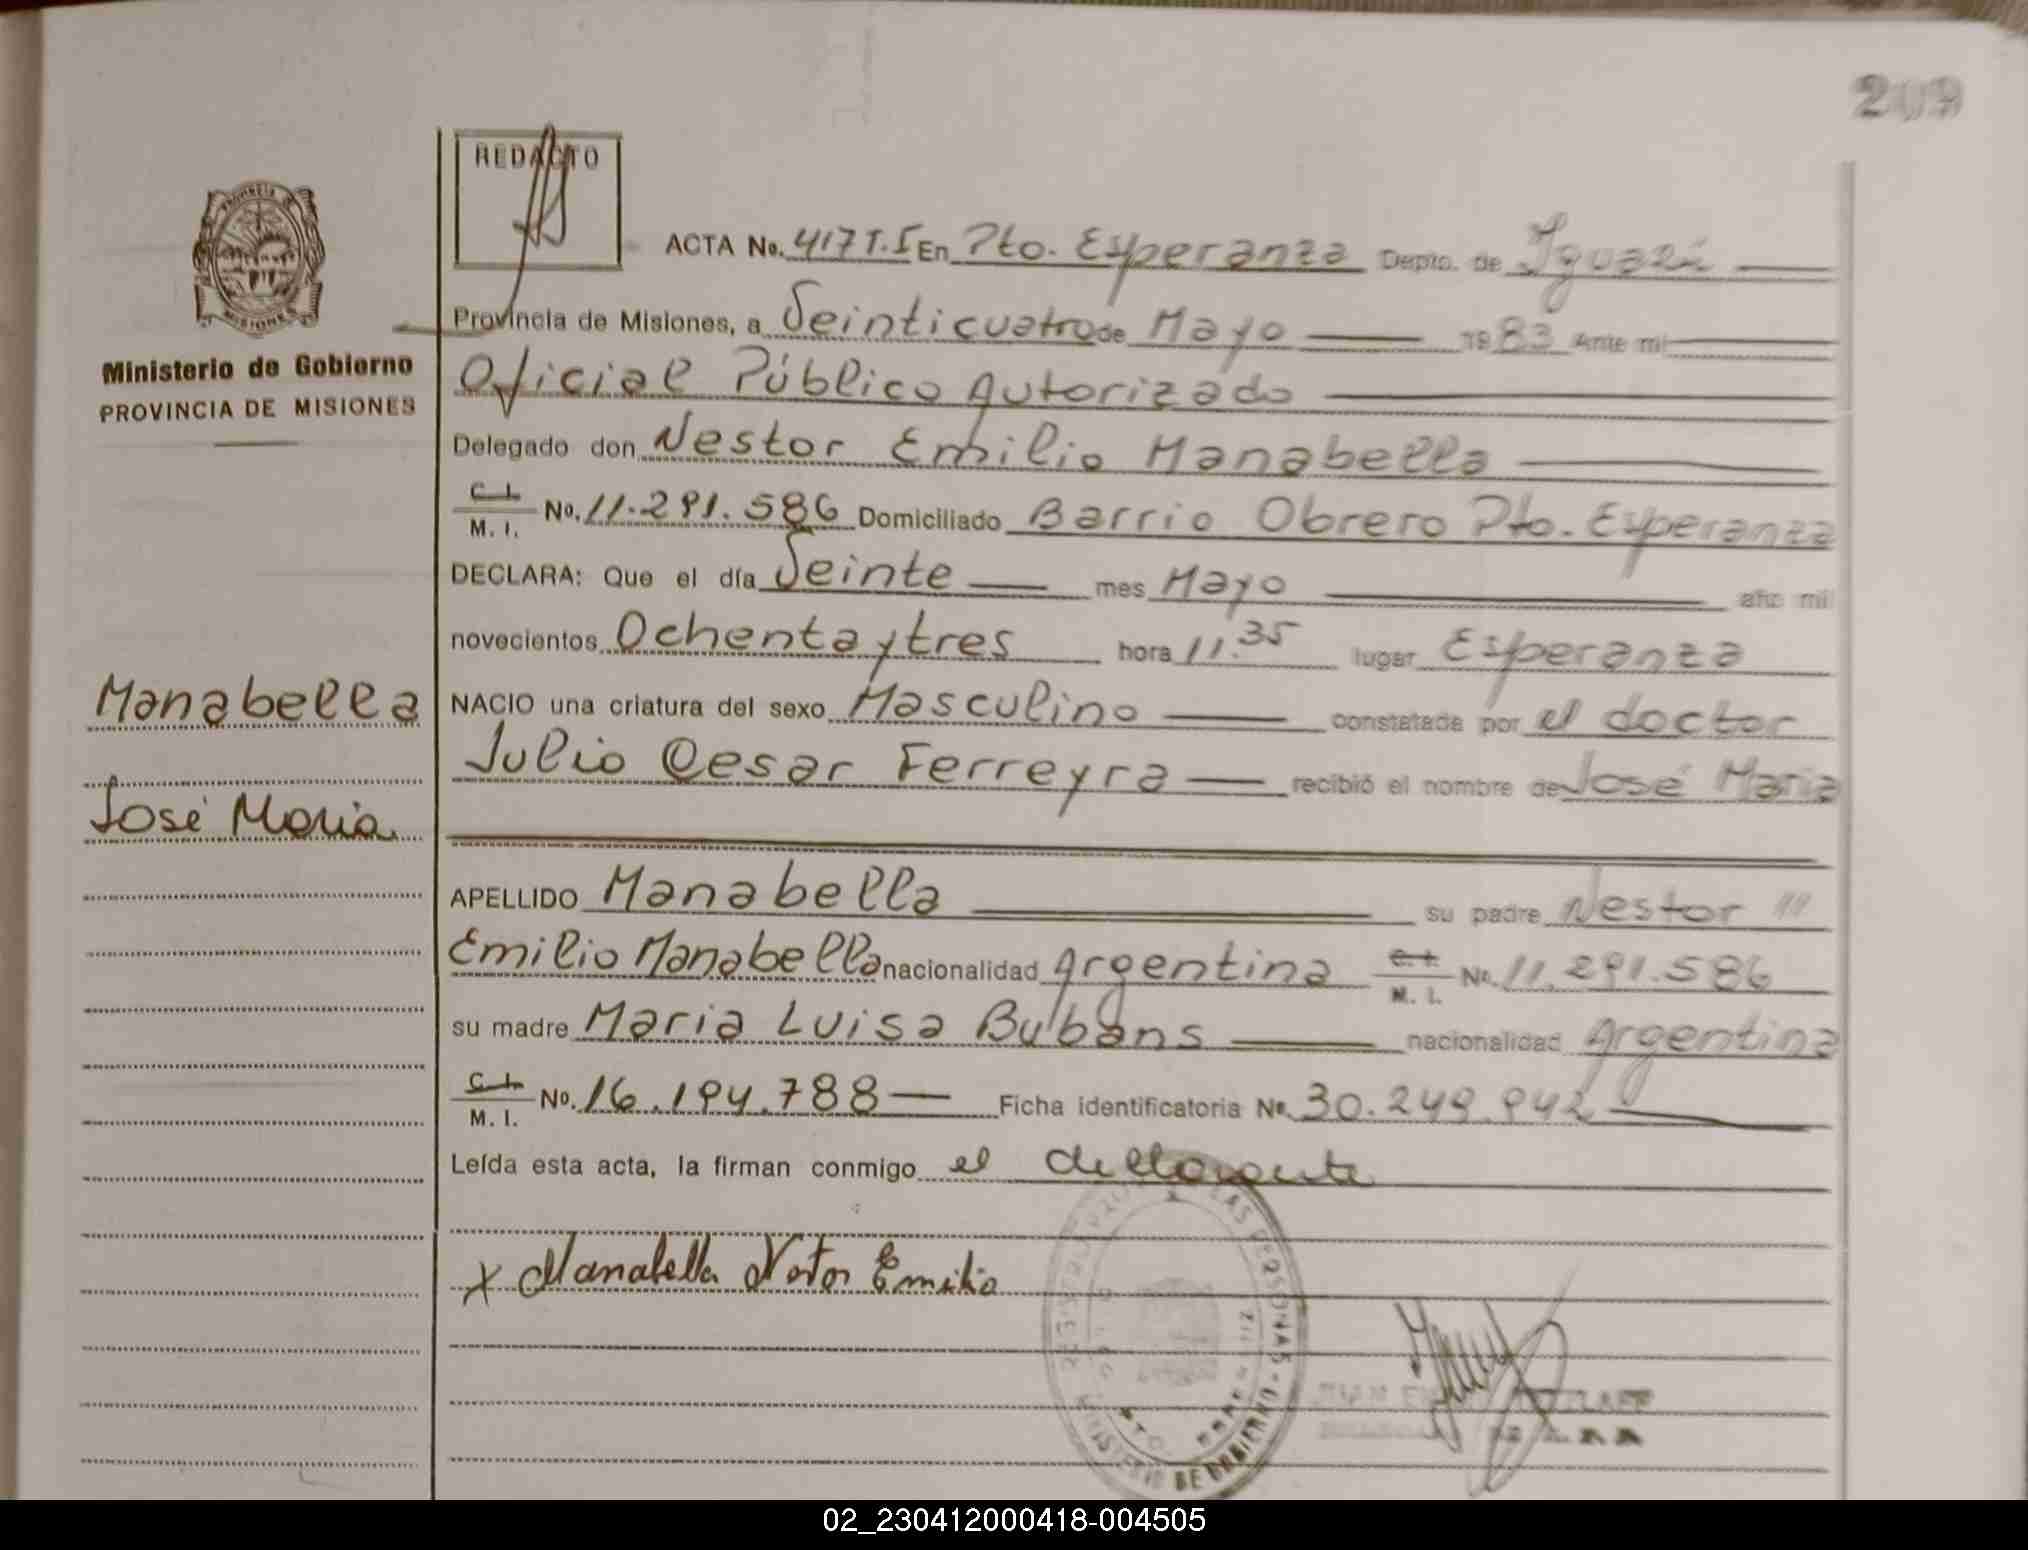 209
REDACTO
ACTA No. 417 T.I En Pto. Esperanza Depto. de Iguazú
Provincia de Misiones, a Veinticuatro de Mayo 1983 Ante mi
Oficial Público Autorizado
Ministerio de Gobierno
PROVINCIA DE MISIONES
Delegado don Nestor Emilio Manabella
C. I. M. I. No. 11.291.586 Domiciliado Barrio Obrero Pto. Esperanza
DECLARA: Que el día Veinte mes Mayo año mil
novecientos Ochenta y tres hora 11.35 lugar Esperanza
Manabella
NACIO una criatura del sexo Masculino constatada por el doctor
Julio Cesar Ferreyra recibió el nombre de José Maria
José Maria
APELLIDO Manabella su padre Nestor
Emilio Manabella nacionalidad Argentina C. I. M. I. No. 11.291.586
su madre Maria Luisa Bubans nacionalidad Argentina
C. I. M. I. No. 16.194.788 Ficha identificatoria No. 30.249.942
Leída esta acta, la firman conmigo el
x Manabella Nestor Emilio
02_230412000418-004505